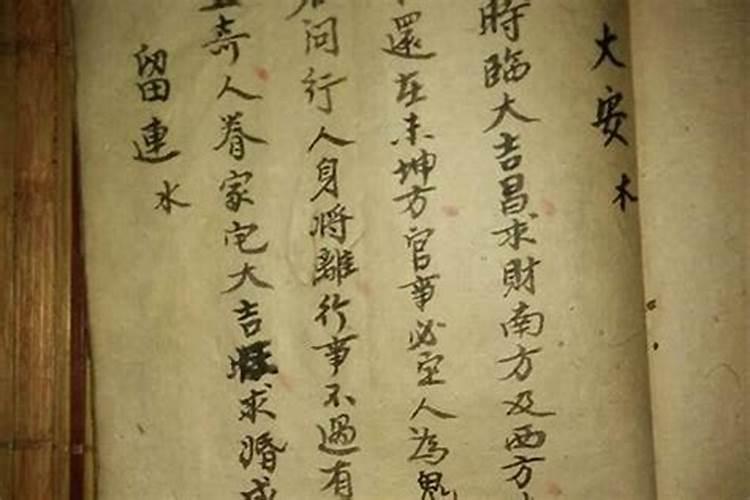 大安 木
時臨大吉昌求財南方及西方
還在未坤方官事必空人為鬼
問行人身将離行事不過有
奇人眷家宅大吉 求婚成
留連 水